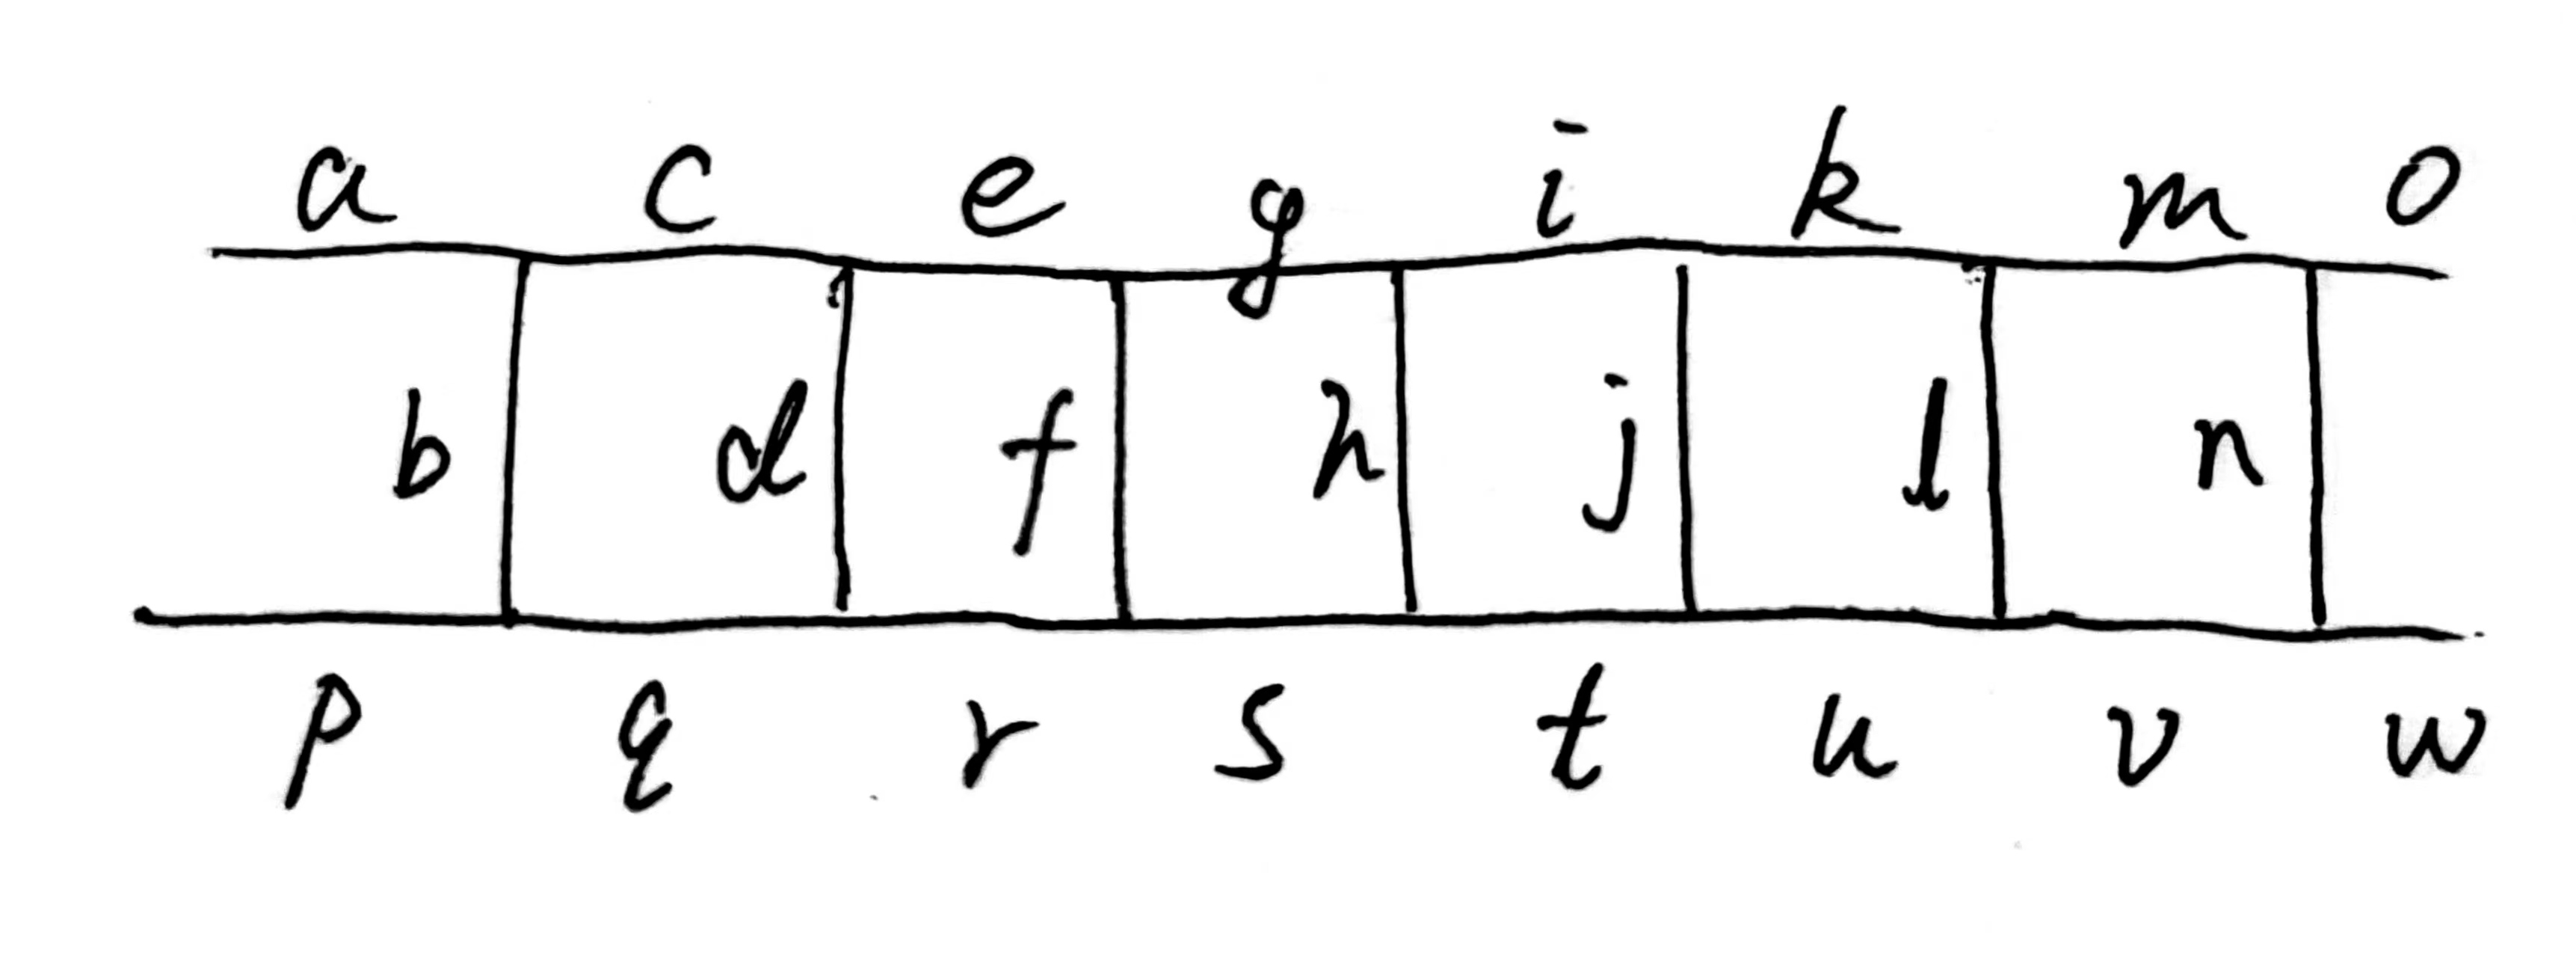 a c e g i k m o
b d f h j l n
p q r s t u v w